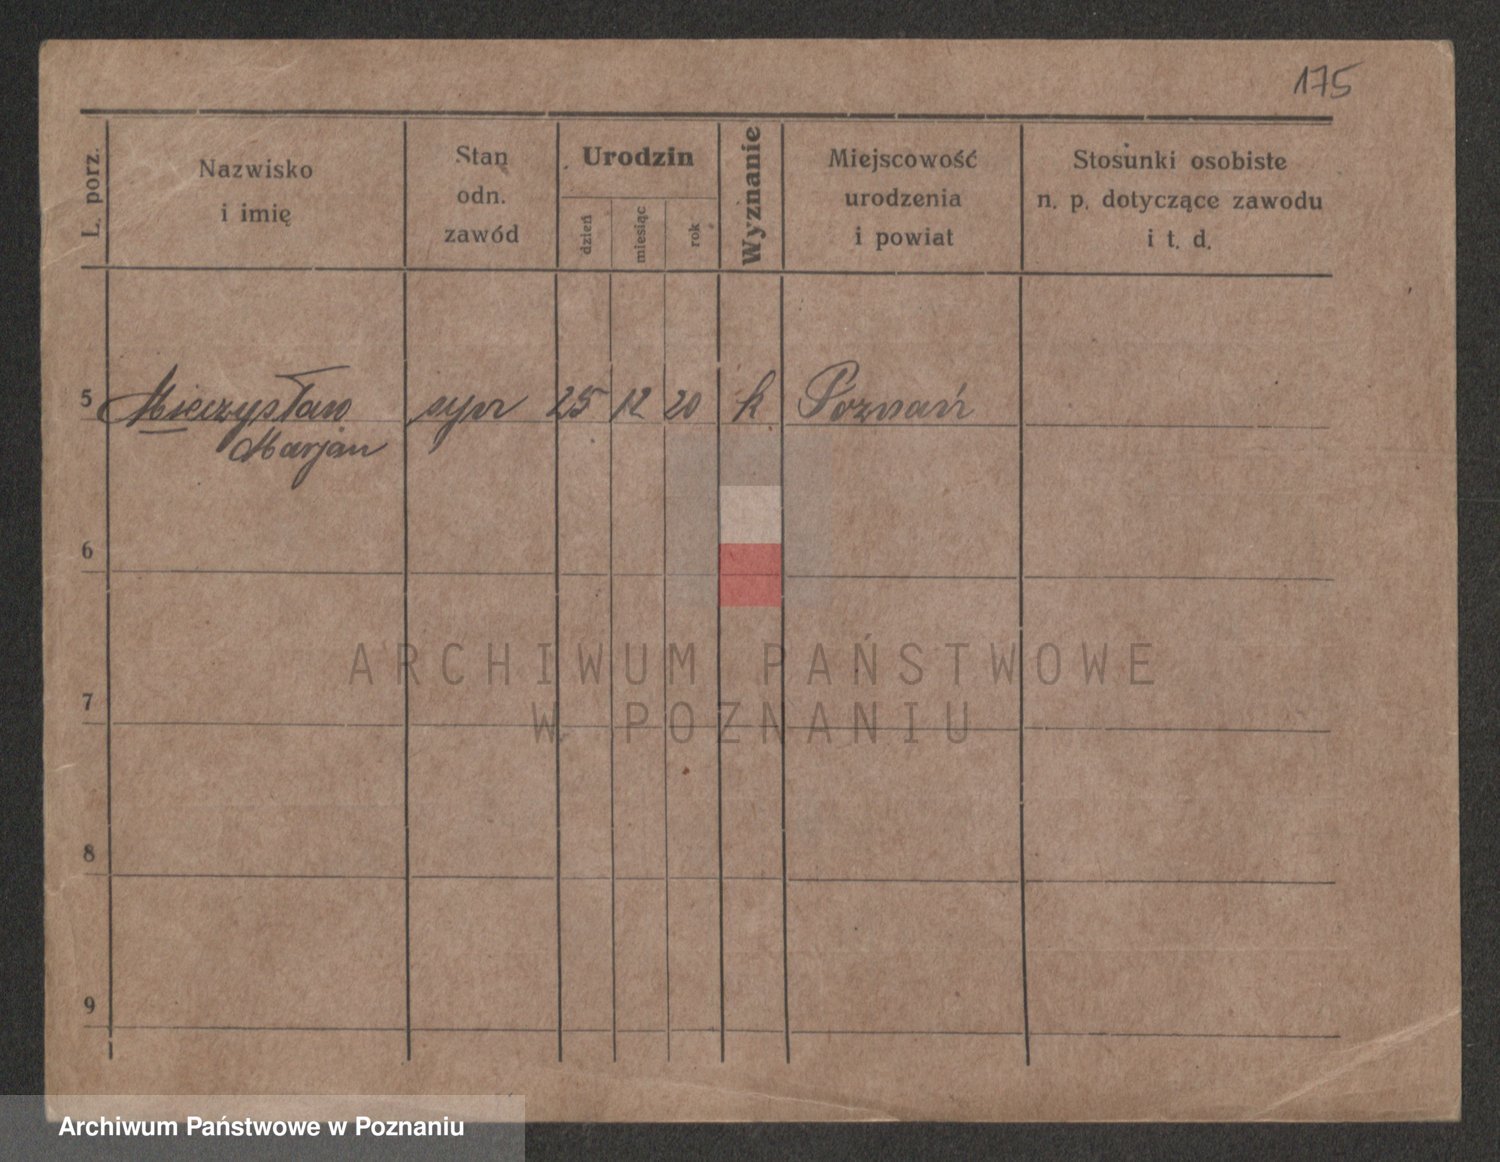 175
L. porz.
Nazwisko
i imię
Stan
odn.
zawód
Urodzin
dzień
miesiąc
rok
Wyznanie
Miejscowość
urodzenia
i powiat
Stosunki osobiste
n. p. dotyczące zawodu
i t. d.
5 Mieczysław syn 25 12 20 k Poznań
Marjan
6
7
8
9
ARCHIWUM PAŃSTWOWE
W POZNANIU
Archiwum Państwowe w Poznaniu